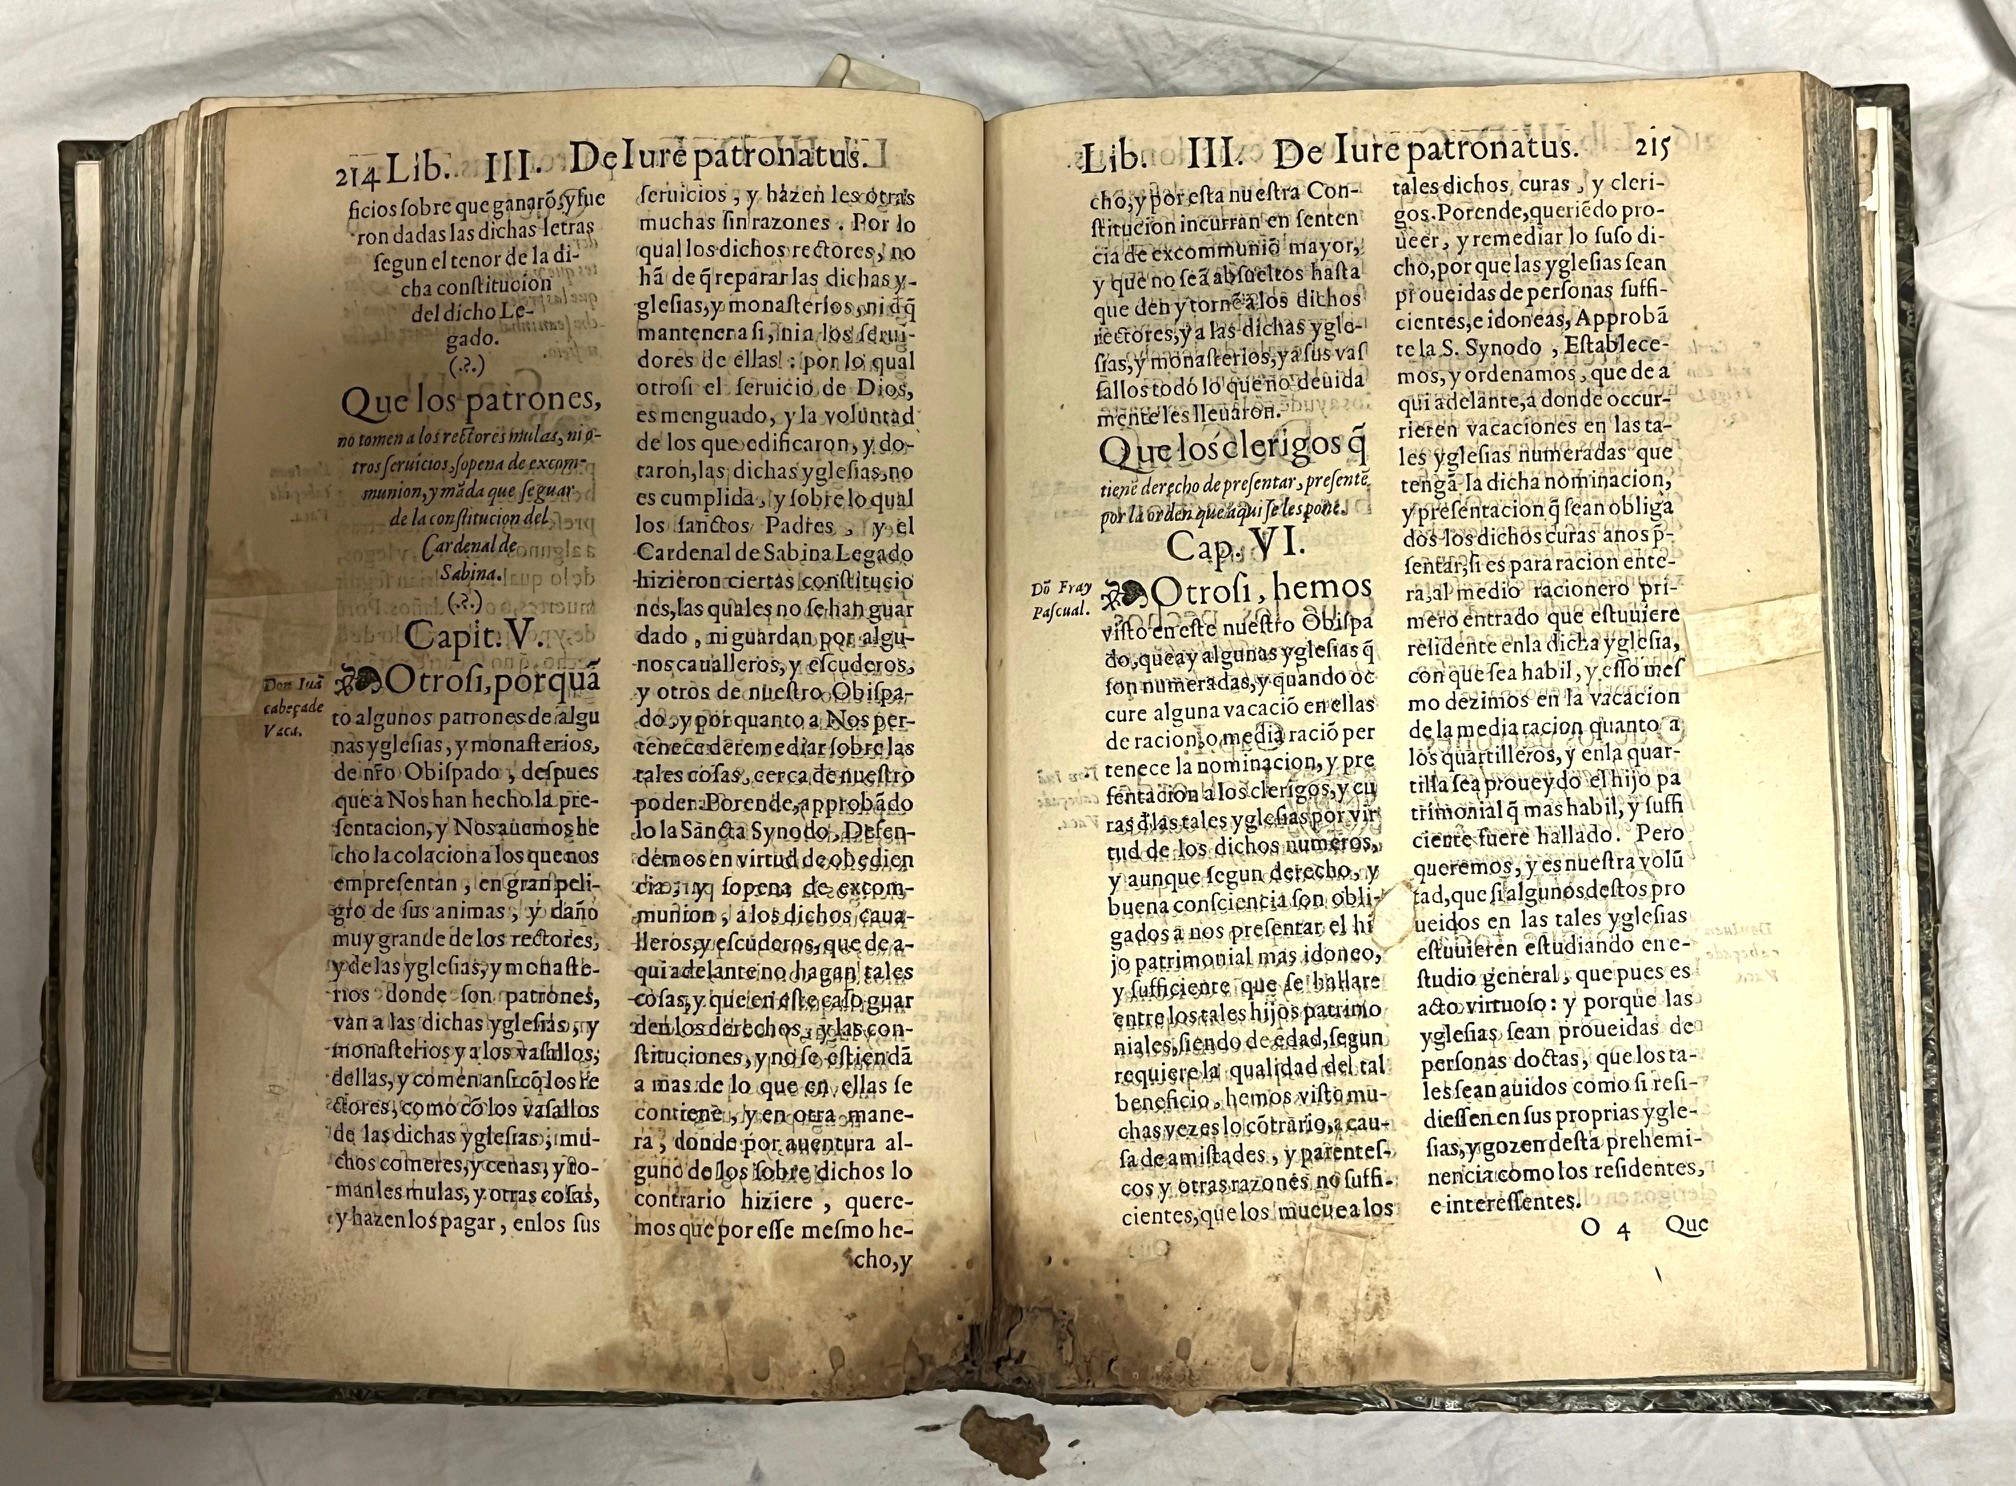 214 Lib. III. De Iure patronatus.
ficios sobre que ganarō, y fue
ron dadas las dichas letras
segun el tenor de la di-
cha constitucion
del dicho Le-
gado.
(.?.)
Que los patrones,
no tomen a los rectores mulas, ni o-
tros seruicios, sopena de excom-
munion, y māda que se guar
de la constitucion del
Cardenal de
Sabina.
(.?.)
Capit. V.
Don Iuā
cabeça de
Vaca.
Otrosi, porquā
to algunos patrones de algu
nas yglesias, y monasterios,
de nr̃o Obispado, despues
que a Nos han hecho la pre-
sentacion, y Nos auemos he
cho la colacion a los que nos
empresentan, en gran peli-
gro de sus animas, y daño
muy grande de los rectores,
y de las yglesias, y monaste-
rios donde son patrones,
van a las dichas yglesias, y
monasterios y a los vasallos,
dellas, y comen ansi cō los re
ctores, como cō los vasallos
de las dichas yglesias, mu-
chos comeres, y cenas, y to-
manles mulas, y otras cosas,
y hazen los pagar, en los sus
seruicios, y hazen les otras
muchas sinrazones. Por lo
qual los dichos rectores, no
hā de q̄ reparar las dichas y-
glesias, y monasterios, ni d̄ q̄
mantener a si, ni a los serui-
dores de ellas: por lo qual
otrosi el seruicio de Dios,
es menguado, y la voluntad
de los que edificaron, y do-
taron, las dichas yglesias, no
es cumplida, y sobre lo qual
los sanctos Padres, y el
Cardenal de Sabina Legado
hizieron ciertas constitucio
nes, las quales no se han guar
dado, ni guardan por algu-
nos caualleros, y escuderos,
y otros de nuestro Obispa-
do, y por quanto a Nos per-
tenece de remediar sobre las
tales cosas, cerca de nuestro
poder. Porende, approbādo
lo la Sancta Synodo, Defen-
demos en virtud de obedien
cia, y sopena de excom-
munion, a los dichos caua-
lleros, y escuderos, que de a-
qui adelante no hagan tales
cosas, y que en este caso guar
den los derechos, y las con-
stituciones, y no se estiendā
a mas de lo que en ellas se
contiene, y en otra mane-
ra, donde por auentura al-
guno de los sobre dichos lo
contrario hiziere, quere-
mos que por esse mesmo he-
cho, y
Lib. III. De Iure patronatus. 215
cho, y por esta nuestra Con-
stitucion incurran en senten
cia de excommuniō mayor,
y que no seā absueltos hasta
que den y tornē a los dichos
rectores, y a las dichas ygle-
sias, y monasterios, y a sus vas
sallos todo lo que no deuida
mente les lleuaron.
Que los clerigos q̄
tienē derecho de presentar, presentē
por la orden que aqui se les pone.
Cap. VI.
Dō Fray
Pascual.
Otrosi, hemos
visto en este nuestro Obispa
do, que ay algunas yglesias q̄
son numeradas, y quando oc
cure alguna vacaciō en ellas
de racion, o media raciō per
tenece la nominacion, y pre
sentacion a los clerigos, y cu
ras d̄ las tales yglesias por vir
tud de los dichos numeros,
y aunque segun derecho, y
buena consciencia son obli-
gados a nos presentar el hi
jo patrimonial mas idoneo,
y sufficiente que se hallare
entre los tales hijos patrimo
niales, siendo de edad, segun
requiere la qualidad del tal
beneficio, hemos visto mu-
chas vezes lo cōtrario, a cau-
sa de amistades, y parentes-
cos y otras razones no suffi-
cientes, que los mueue a los
tales dichos curas, y cleri-
gos. Porende, queriēdo pro-
ueer, y remediar lo suso di-
cho, por que las yglesias sean
proueidas de personas suffi-
cientes, e idoneas, Approbā
te la S. Synodo, Establece-
mos, y ordenamos, que de a
qui adelante, a donde occur-
rieren vacaciones en las ta-
les yglesias numeradas que
tengā la dicha nominacion,
y presentacion q̄ sean obliga
dos los dichos curas a nos p̄-
sentar, si es para racion ente-
ra, al medio racionero pri-
mero entrado que estuuiere
residente en la dicha yglesia,
con que sea habil, y esso mes
mo dezimos en la vacacion
de la media racion quanto a
los quartilleros, y en la quar-
tilla sea proueydo el hijo pa
trimonial q̄ mas habil, y suffi
ciente fuere hallado. Pero
queremos, y es nuestra volū
tad, que si algunos destos pro
ueidos en las tales yglesias
estuuieren estudiando en e-
studio general, que pues es
acto virtuoso: y porque las
yglesias sean proueidas de
personas doctas, que los ta-
les sean auidos como si resi-
diessen en sus proprias ygle-
sias, y gozen desta prehemi-
nencia como los residentes,
e interessentes.
O 4 Que